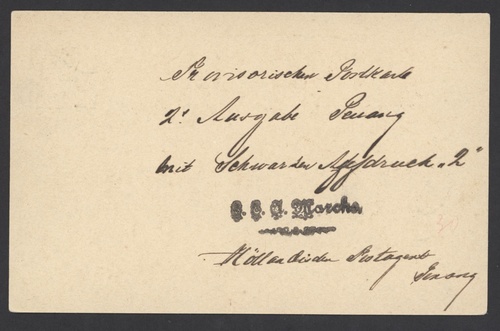 Provisorischen Postkarte
2t Ausgabe Penang
mit Schwarzen Aufdruck „2”
J. E. C. Marche
Holländischen Postagent
Penang